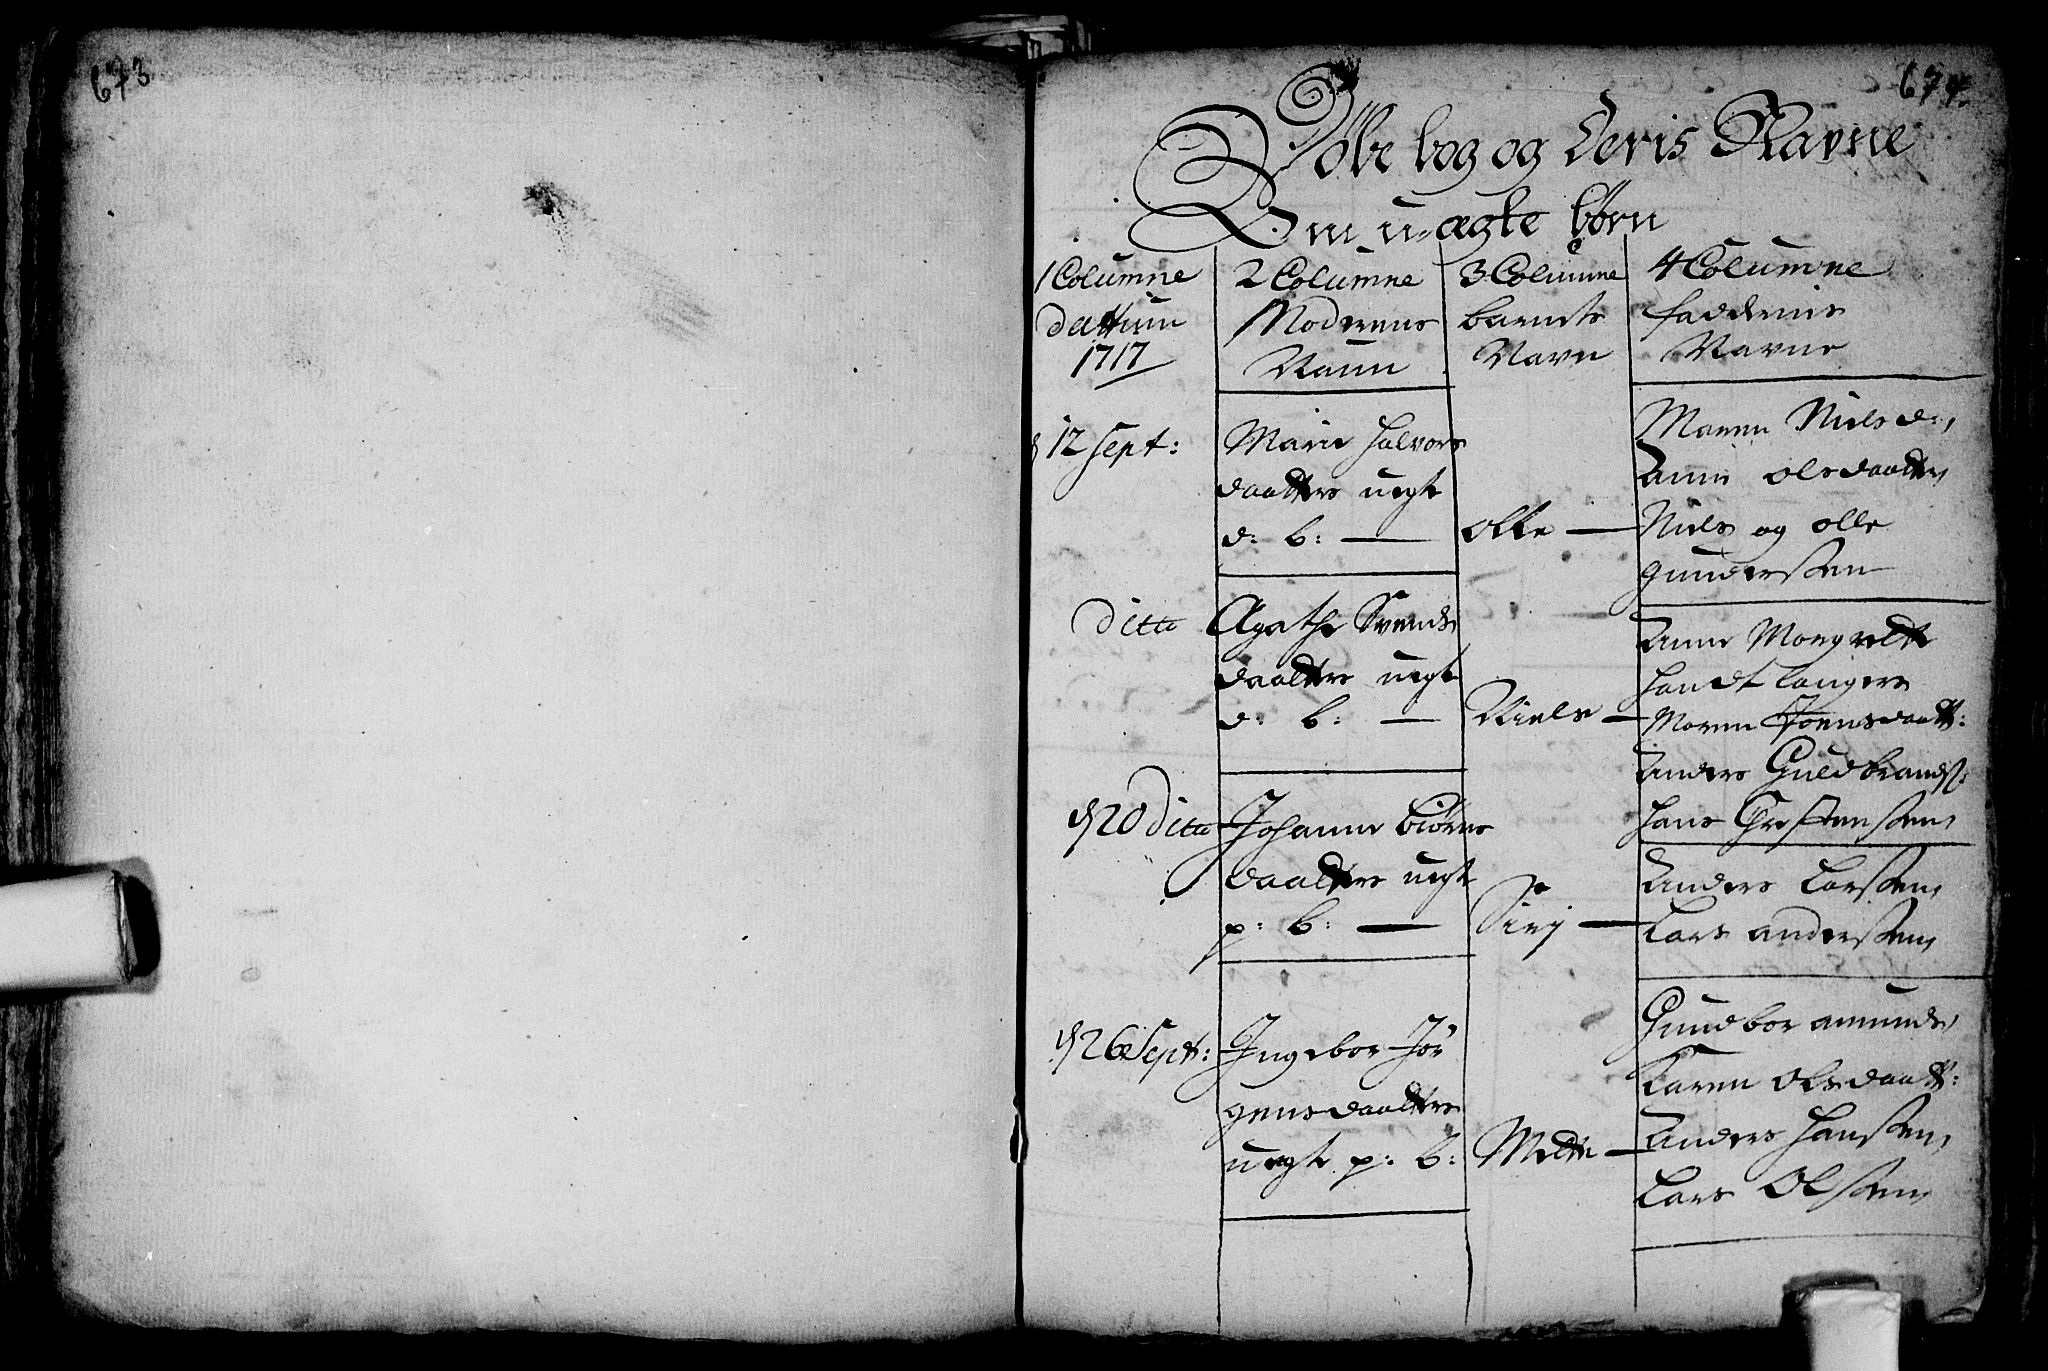 673
674
Døbe bog og deris Navne
Om u-ægte børn
1 Columne
Dattum
1717
2 Columne
Moderens
Naun
3 Columne
barnets
Navn
4 Columne
faddernis
Navne
12 Sept:
Marie Halvors
daatters uegte
d: b: —
Olle —
Maren Niels d:,
Anne Olsdaatter,
Niels og Olle
Gundersen
Ditto
Agathe Svends
daatters uegte
d: b: —
Niels —
Anne
Maren Joensdaatt:
Anders Guldbrands:
Hans Christensen,
20 Ditto
Johanne Biørns
daatters uegte
p: b: —
Siri —
Anders Larsen,
Lars Andersen,
26 Sept:
Ingebor Jør
gensdaatters
uegte p: b:
Mette —
Gundbor Amunds,
Karen Olsdaatt:
Anders Hansen,
Lars Olsen,